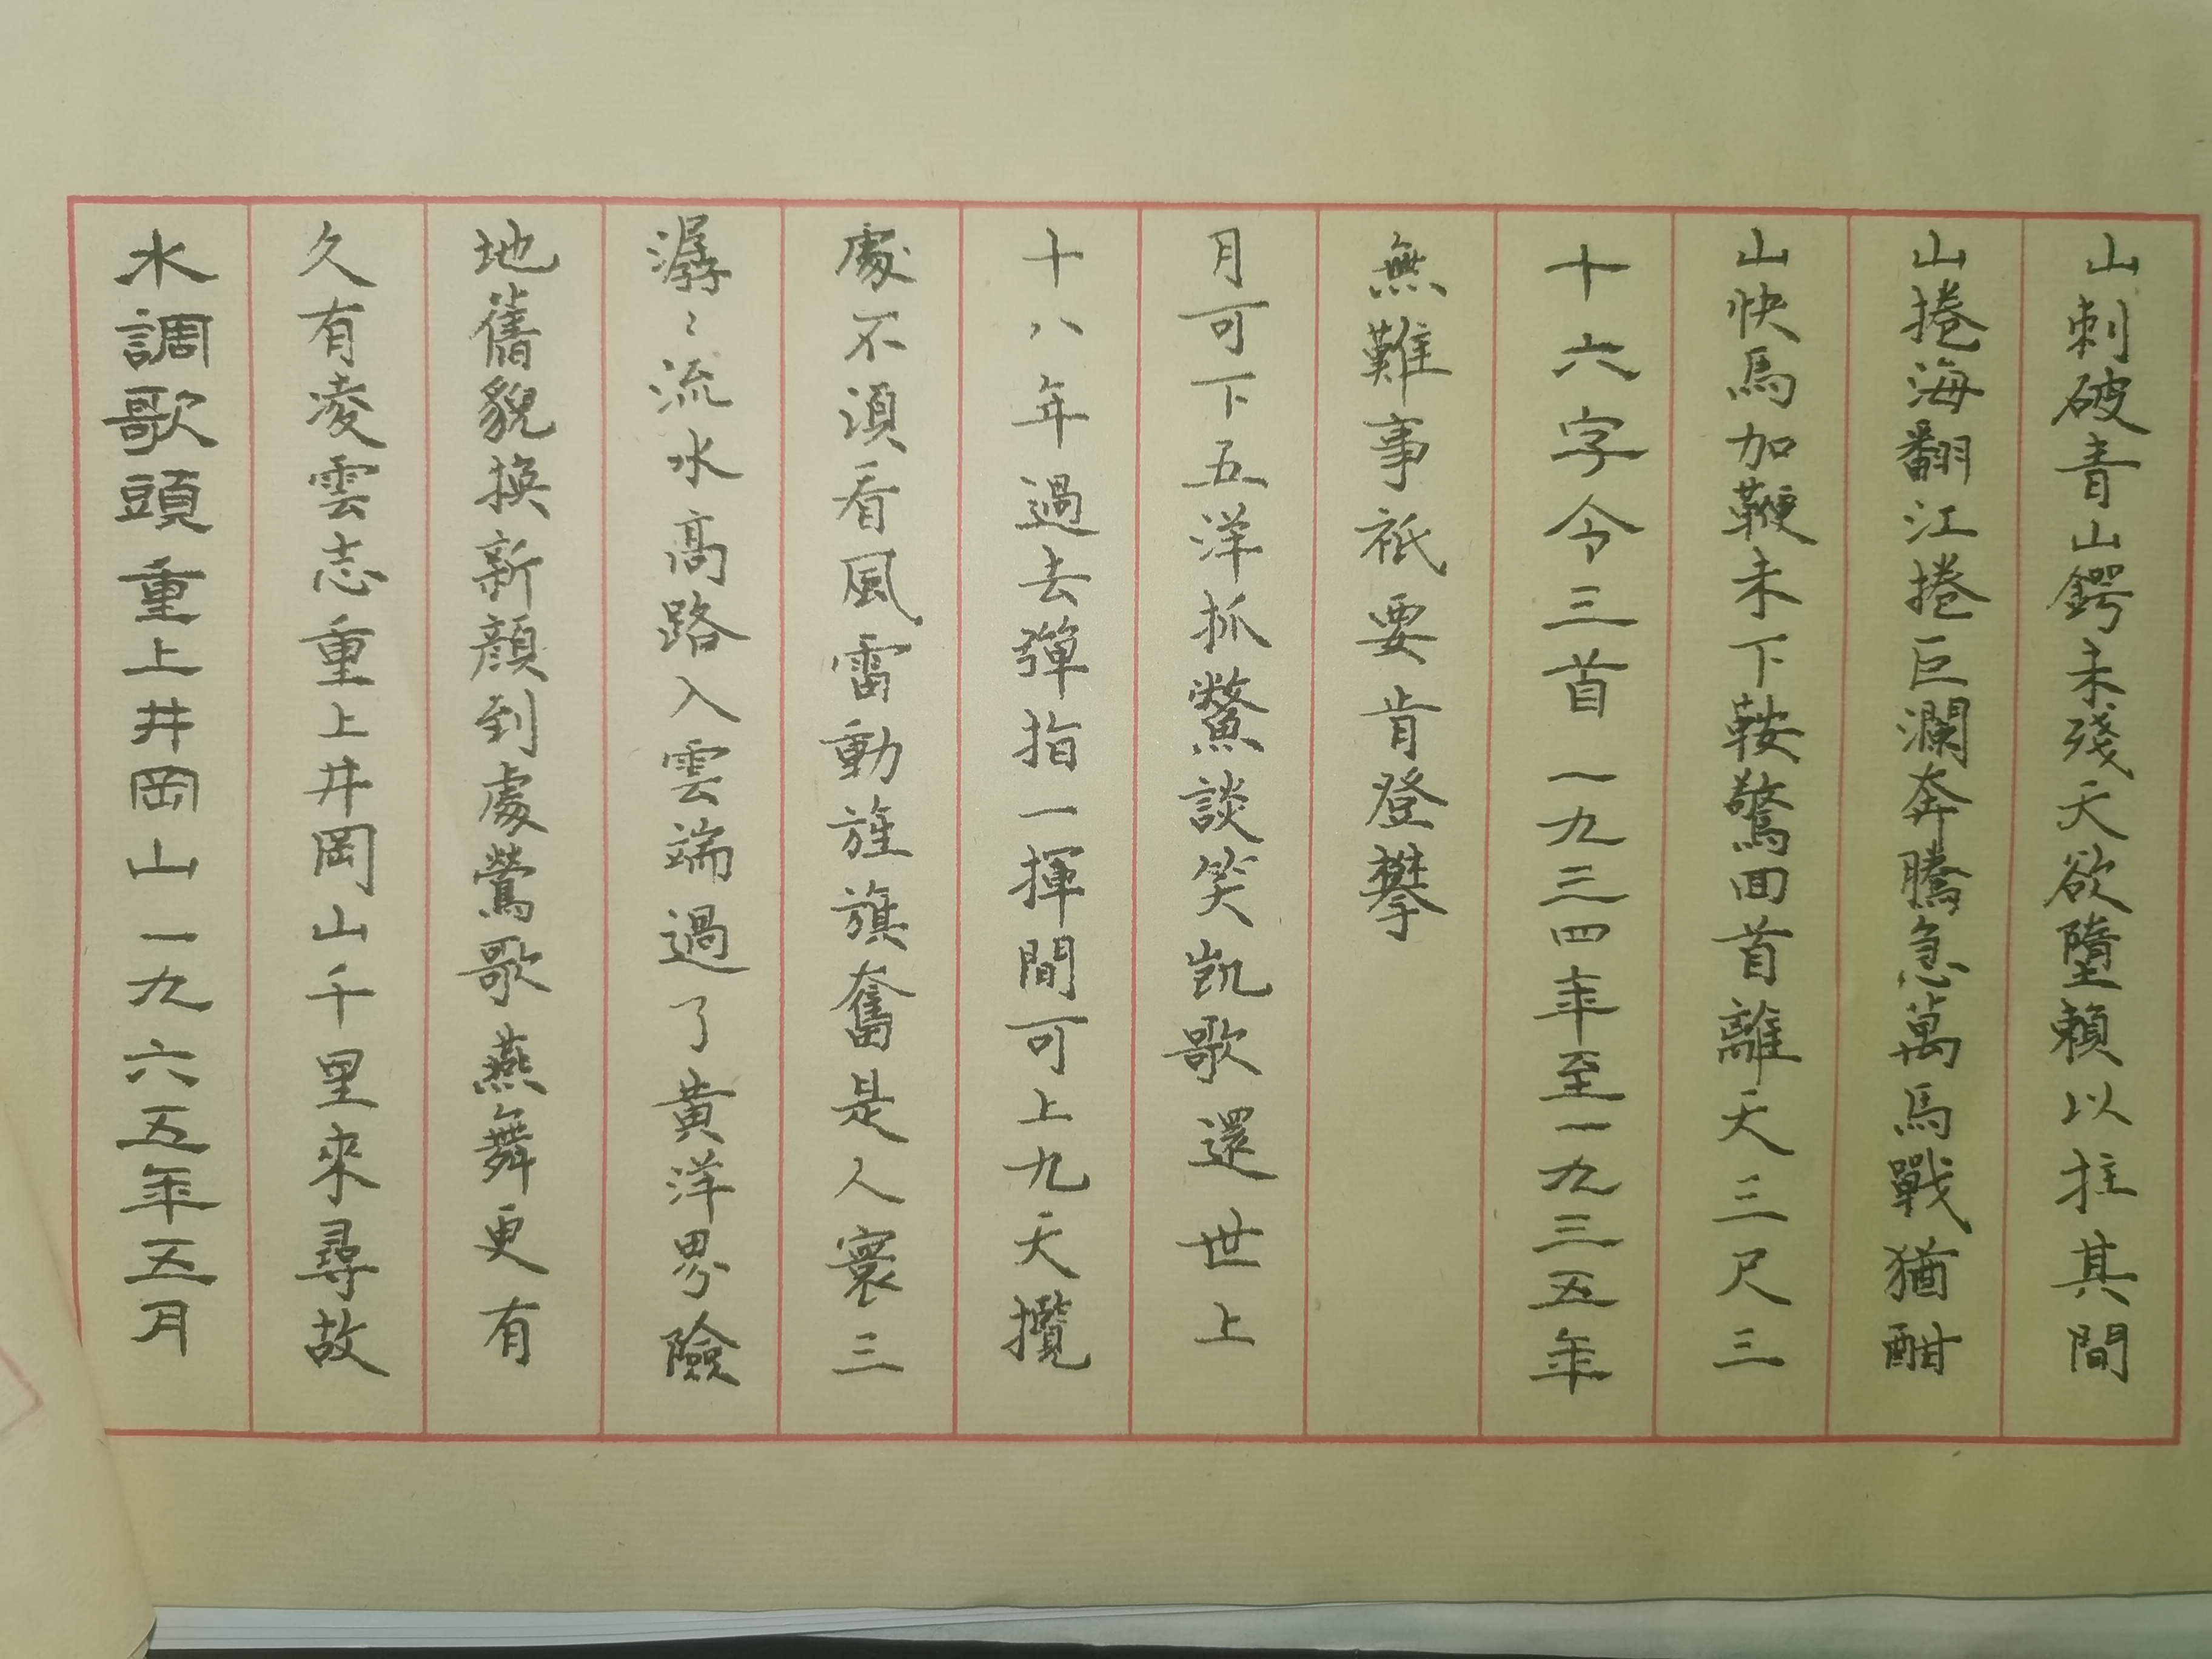 水調歌頭重上井岡山一九六五年五月
久有凌雲志重上井岡山千里來尋故
地舊貌換新顏到處鶯歌燕舞更有
潺〻流水高路入雲端過了黃洋界險
處不須看風雷動旌旗奮是人寰三
十八年過去彈指一揮間可上九天攬
月可下五洋抓鱉談笑凱歌還世上
無難事祇要肯登攀
十六字令三首一九三四年至一九三五年
山快馬加鞭未下鞍驚回首離天三尺三
山捲海翻江捲巨瀾奔騰急萬馬戰猶酣
山刺破青山鍔未殘天欲墮賴以拄其間